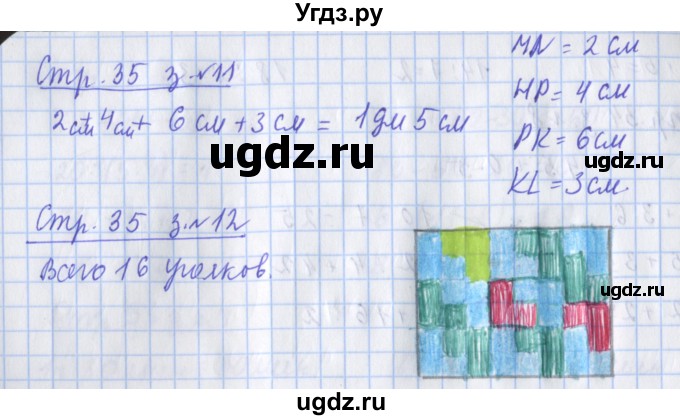 Угдз.ру
Стр. 35 з. №11
2см + 4см + 6 см + 3 см = 1 дм 5 см
MN = 2 см
НР = 4 см
РК = 6см
KL = 3см.
ugdz.ru
ugdz.ru
ugdz.ru
Стр. 35 з. №12
Всего 16 уголков.
ugdz.ru
ugdz.ru